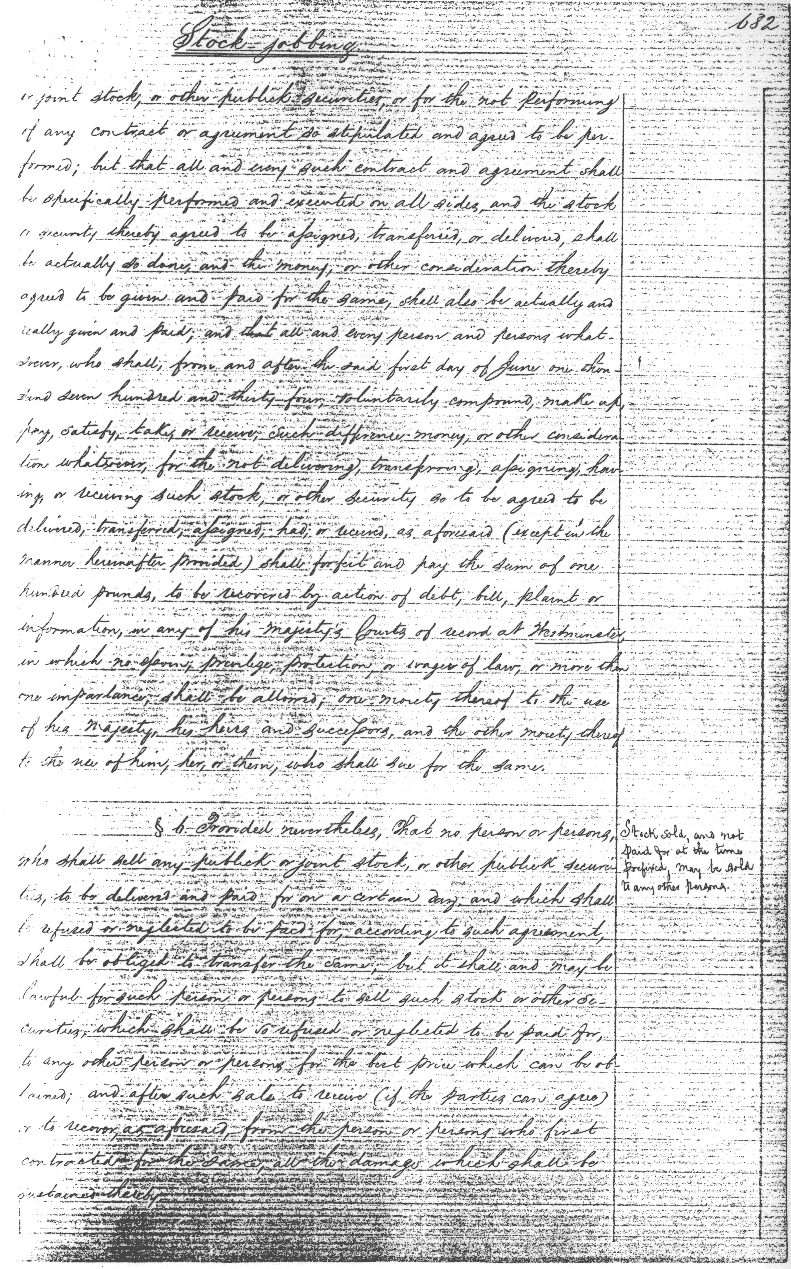 682
Stock-jobbing
or joint stock, or other publick securities, or for the not performing
of any contract or agreement so stipulated and agreed to be per-
formed; but that all and every such contract and agreement shall
be specifically performed and executed on all sides, and the stock
or security thereby agreed to be assigned, transferred, or delivered, shall
be actually so done, and the money, or other consideration thereby
agreed to be given and paid for the same, shall also be actually and
really given and paid; and that all and every person and persons what-
soever, who shall, from and after the said first day of June one thou-
sand seven hundred and thirty four, voluntarily compound, make up,
pay, satisfy, take, or receive, such difference-money, or other considera-
tion whatsoever, for the not delivering, transferring, assigning, hav-
ing, or receiving such stock, or other security so to be agreed to be
delivered, transferred, assigned, had, or received, as aforesaid (except in the
manner hereinafter provided) shall forfeit and pay the sum of one
hundred pounds, to be recovered by action of debt, bill, plaint or
information, in any of his majesty's Courts of record at Westminster,
in which no essoin, privilege, protection, or wager of law, or more than
one imparlance, shall be allowed; one moiety thereof to the use
of his Majesty, his heirs and successors, and the other moiety thereof
to the use of him, her, or them, who shall sue for the same.
§ 6. Provided nevertheless, That no person or persons,
who shall sell any publick or joint stock, or other publick securi-
ties, to be delivered and paid for on a certain day, and which shall
be refused or neglected to be paid for, according to such agreement,
shall be obliged to transfer the same; but it shall and may be
lawful for such person or persons to sell such stock or other se-
curities, which shall be so refused or neglected to be paid for,
to any other person or persons for the best price which can be ob-
tained; and after such sale to receive (if the parties can agree)
or to recover, as aforesaid, from the person or persons who first
contracted for the same, all the damage which shall be
sustained thereby.
Stock sold, and not
paid for at the time
prefixed, may be sold
to any other persons.